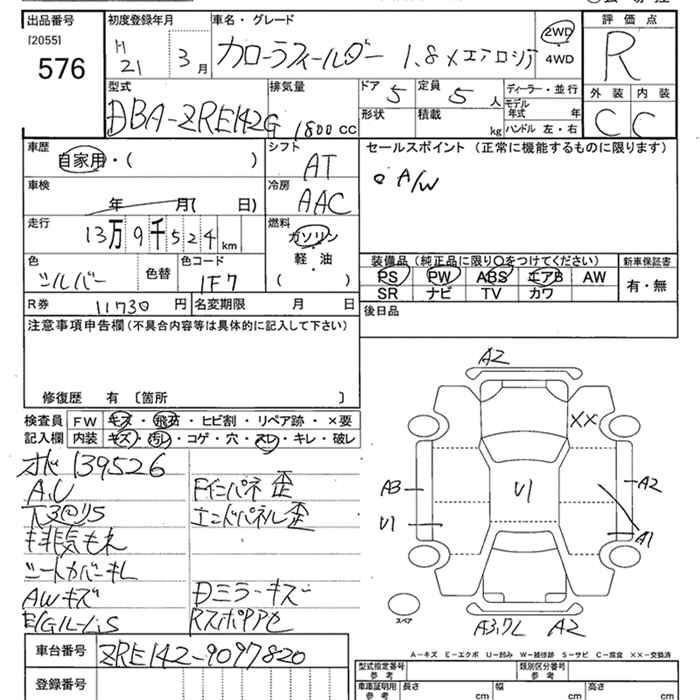 出品番号
[2055]
576
初度登録年月
H 21 3月
車名・グレード
カローラフィールダー 1.8×エアロツア
2WD
4WD
評価点
R
型式
DBA-ZRE142G
排気量
1800cc
ドア 5
定員 5人
形状
積載 kg
ディーラー・並行
モデル年式 年
ハンドル 左・右
外装 内装
C C
車歴
自家用・( )
シフト
AT
セールスポイント (正常に機能するものに限ります)
○ A/W
車検
年 月( 日)
冷房
AAC
走行
13万9千524km
燃料
ガソリン
軽・油
( )
色
シルバー
色替
色コード
1F7
装備品(純正品に限り○をつけてください)
新車保証書
PS PW ABS エアB AW
SR ナビ TV カワ
有・無
R券 11730円
名変期限 月 日
後日品
注意事項申告欄(不具合内容等は具体的に記入して下さい)
修復歴 有 〔箇所 〕
検査員 FW キズ・飛石・ヒビ割・リペア跡・×要
記入欄 内装 キズ・汚レ・コゲ・穴・スレ・キレ・破レ
オド 139526
A.U
Fインパネ 歪
エンドパネル歪
排気もれ
シートカバーキレ
AWキズ
Dミラーキズ
A2
XX
A3
U1
U1
A2
A1
スペア
A2
A-キズ E-エクボ U-凹み W-補修跡 S-サビ C-腐食 XX-交換済
車台番号 ZRE142-9097820
登録番号
型式指定番号
参考
類別区分番号
参考
車庫証明用
参考
長さ cm
幅 cm
高さ cm